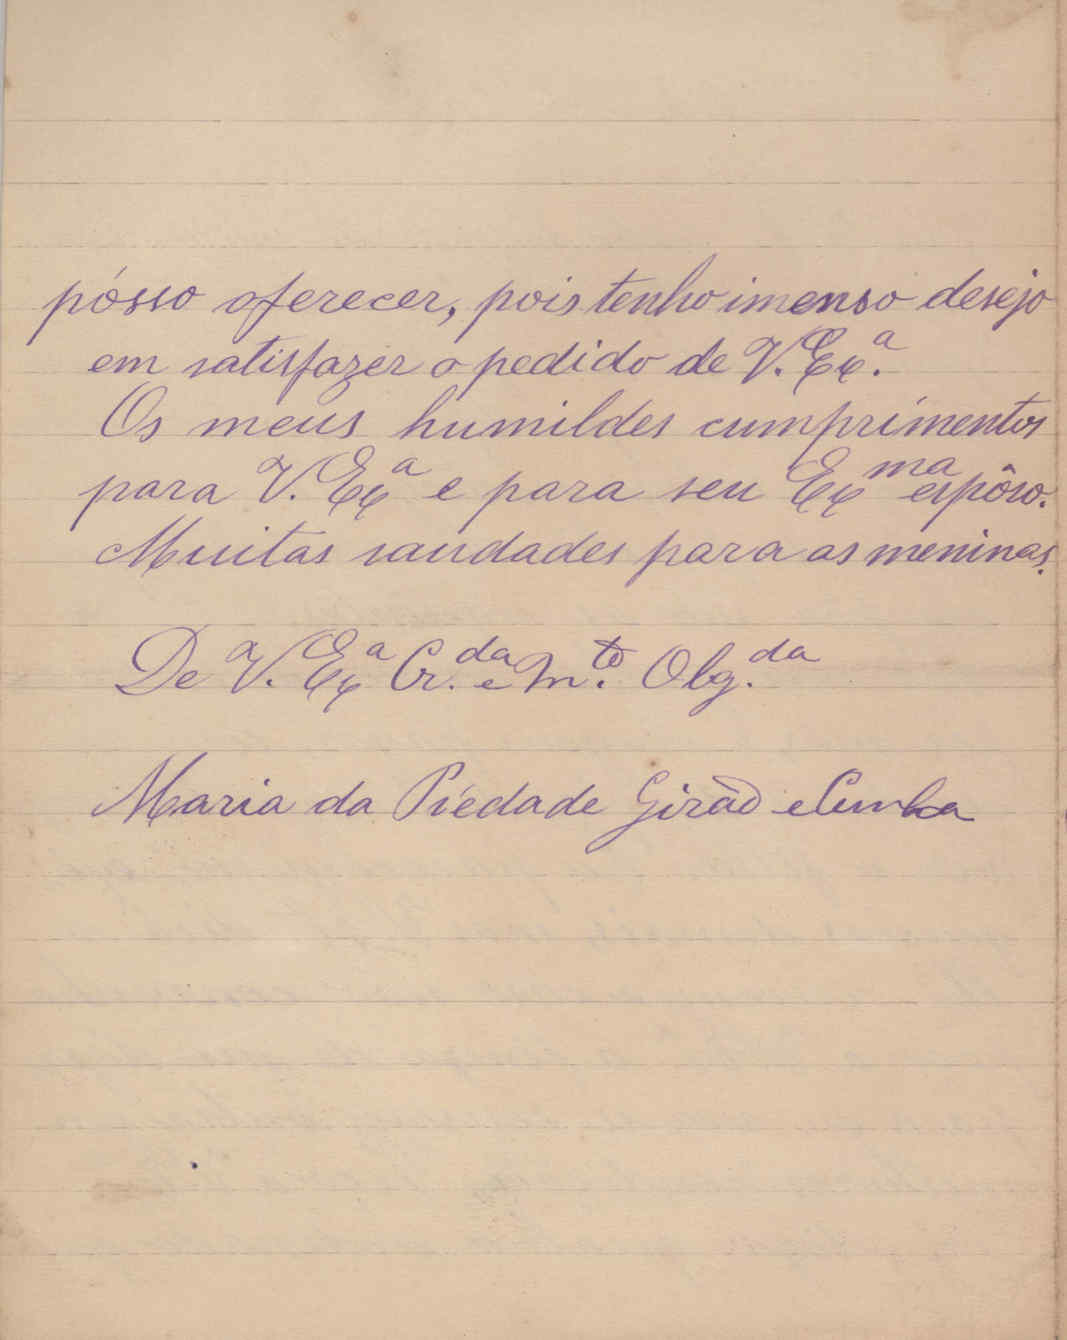 pósso oferecer, pois tenho imenso desejo
em satisfazer o pedido de V. Exª.
Os meus humildes cumprimentos
para V. Exª e para seu Exᵐᵃ espôso.
Muitas saudades para as meninas.
De V. Exª Cr.ᵈᵃ e m.ᵗᵒ Obg.ᵈᵃ
Maria da Piedade Girão e Cunha